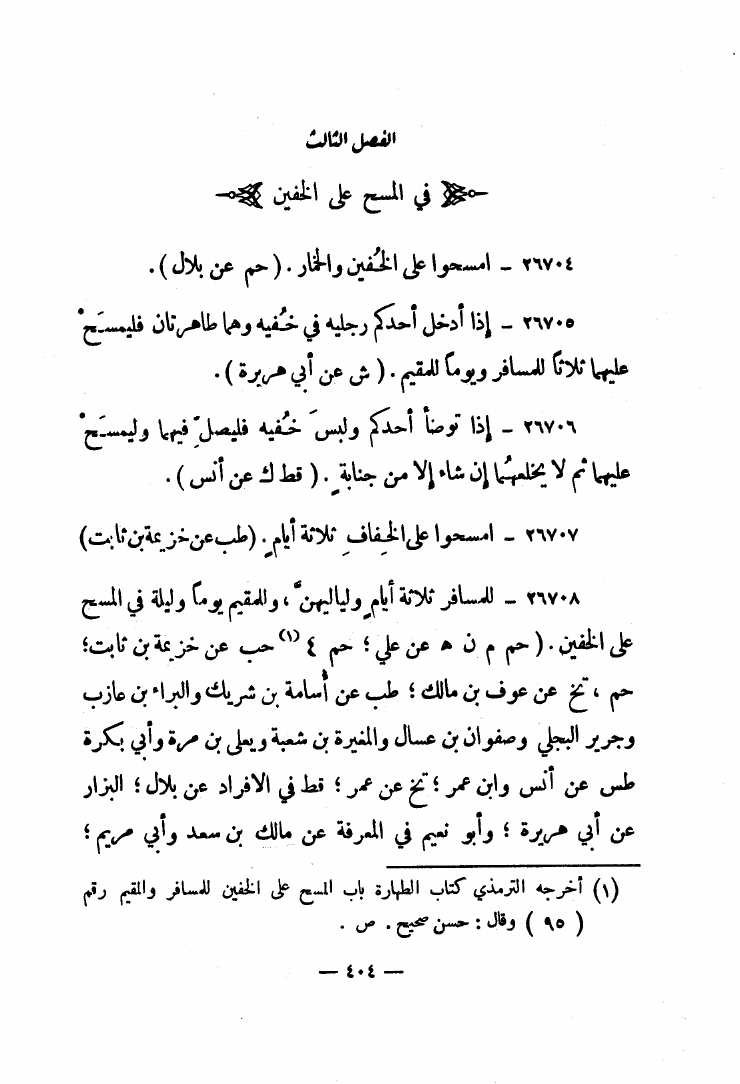 الفصل الثالث
في المسح على الخفين
٢٦٧٠٤ - امسحوا على الخُفين والخمار . ( حم عن بلال ) .
٢٦٧٠٥ - إذا أدخل أحدكم رجليه في خُفيه وهما طاهرتان فليمسَحْ
عليهما ثلاثاً للمسافر ويوماً للمقيم . ( ش عن أبي هريرة ) .
٢٦٧٠٦ - إذا توضأ أحدكم ولبسَ خُفيه فليصلِّ فيهما وليمسَحْ
عليهما ثم لا يخلعهُما إن شاء إلا من جنابةٍ . ( قط ك عن أنس ) .
٢٦٧٠٧ - امسحوا على الخِفافِ ثلاثة أيامٍ . (طب عن خزيمة بن ثابت)
٢٦٧٠٨ - للمسافر ثلاثة أيامٍ ولياليهنَّ ، وللمقيم يوماً وليلة في المسح
على الخفين . ( حم م ن ه عن علي ؛ حم ٤ (١) حب عن خزيمة بن ثابت ؛
حم ، تخ عن عوف بن مالك ؛ طب عن أسامة بن شريك والبراء بن عازب
وجرير البجلي وصفوان بن عسال والمغيرة بن شعبة ويعلى بن مرة وأبي بكرة
طس عن أنس وابن عمر ؛ تخ عن عمر ؛ قط في الافراد عن بلال ؛ البزار
عن أبي هريرة ؛ وأبو نعيم في المعرفة عن مالك بن سعد وأبي مريم ؛
(١) أخرجه الترمذي كتاب الطهارة باب المسح على الخفين للمسافر والمقيم رقم
( ٩٥ ) وقال : حسن صحيح . ص .
— ٤٠٤ —